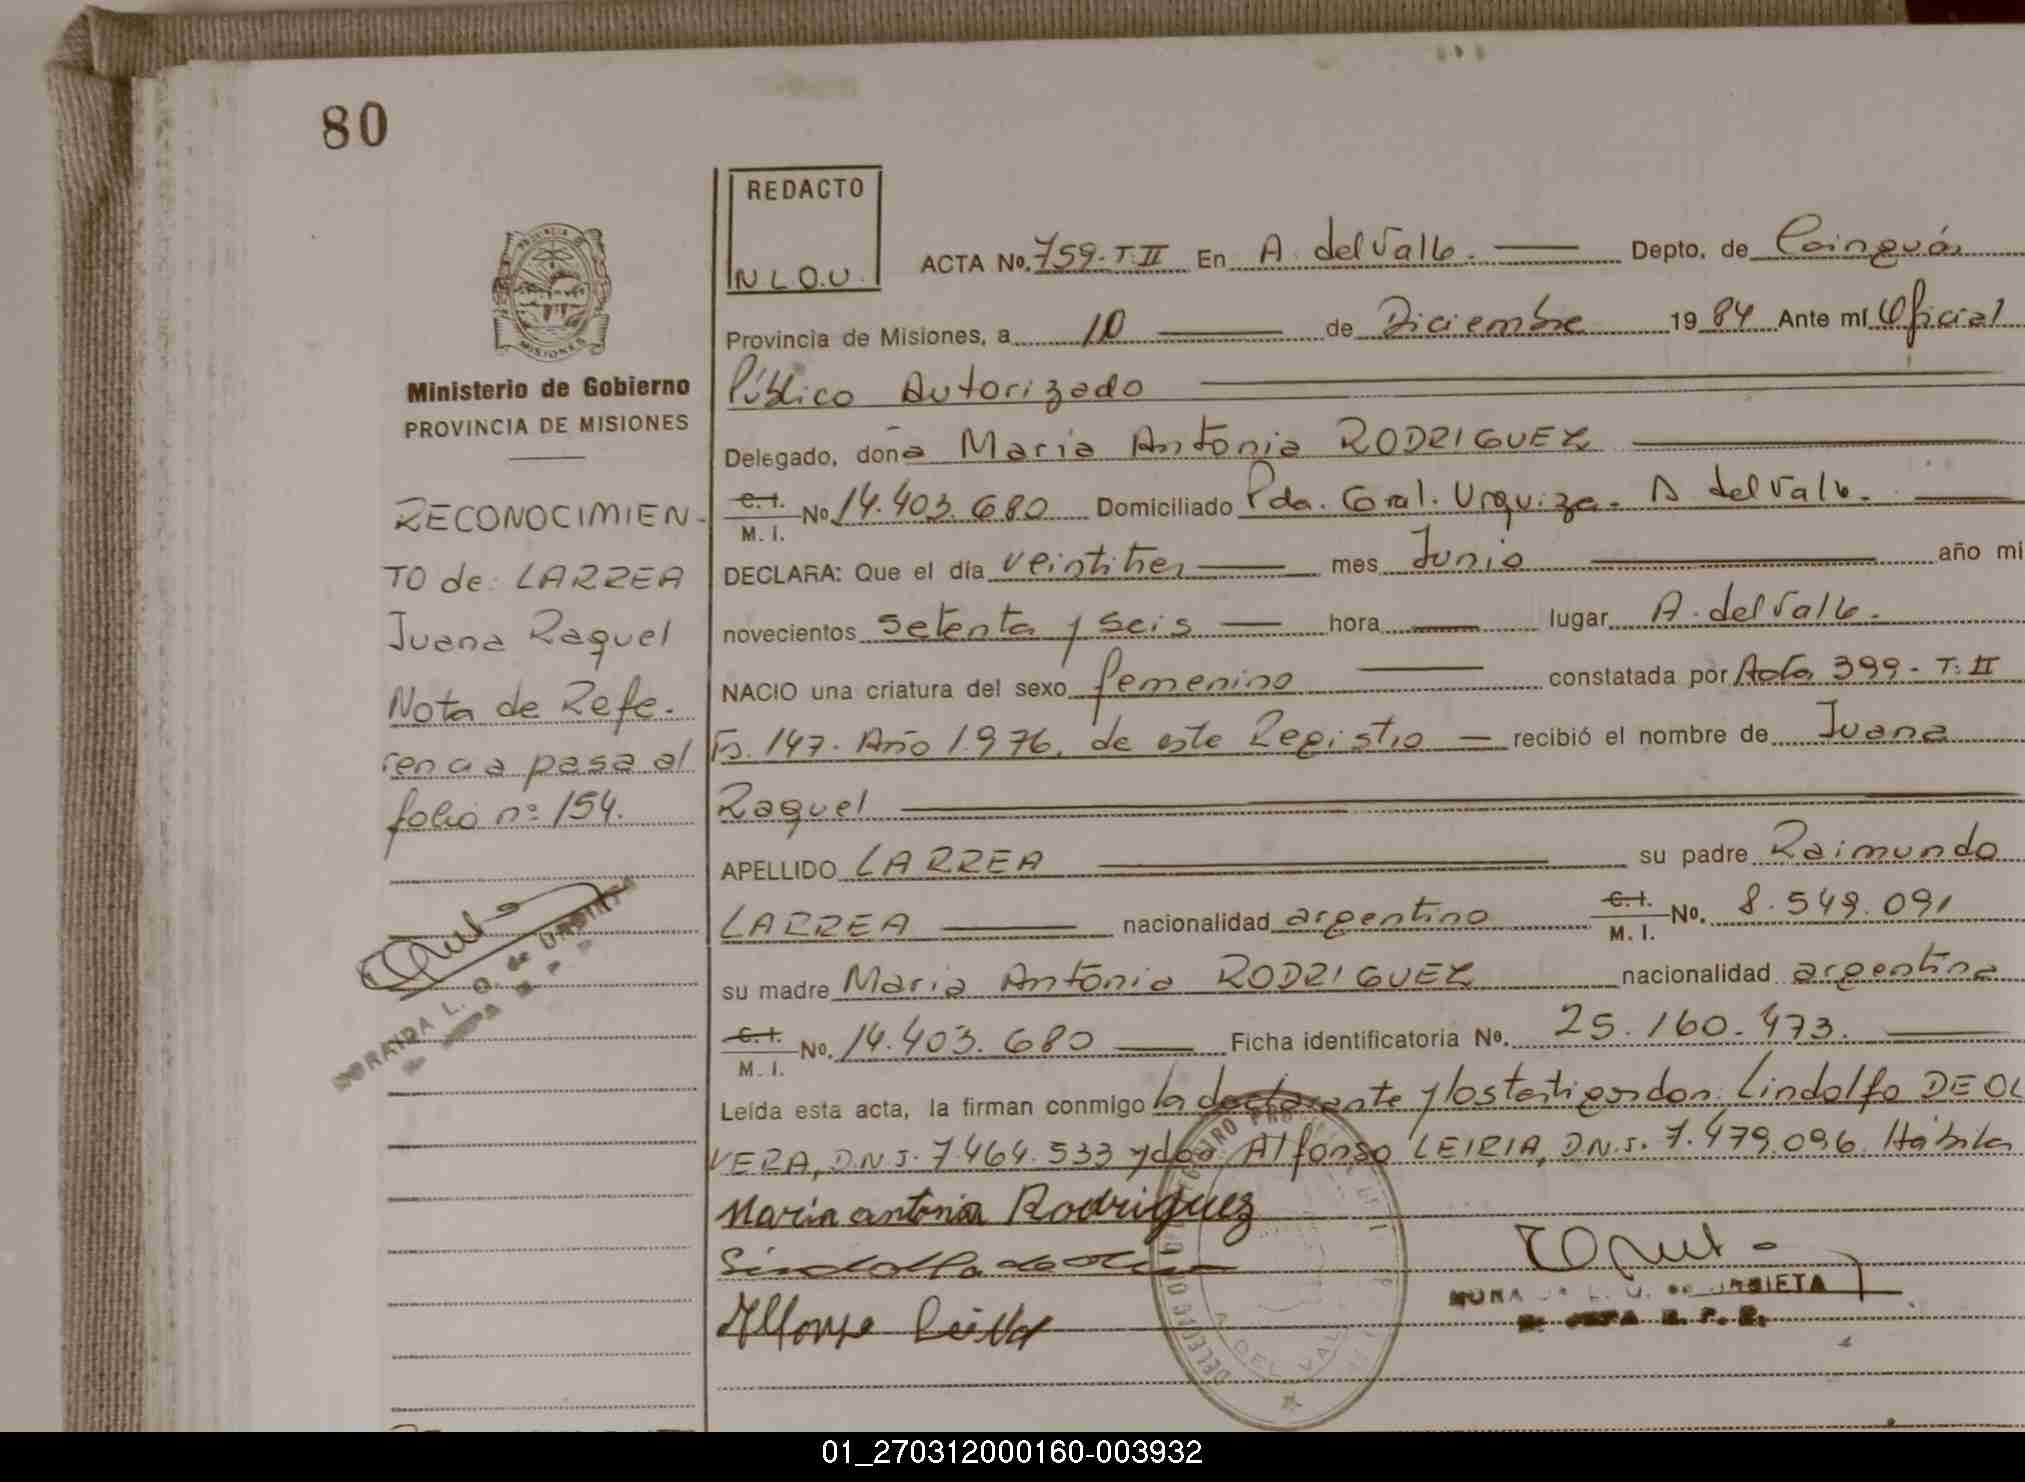 80
REDACTO
N L.O.U.
ACTA No. 759-T.II En A. del Valle. Depto. de Cainguás
Provincia de Misiones, a 10 de Diciembre 19 84 Ante mí Oficial
Público Autorizado
Delegado, doña Maria Antonia RODRIGUEZ
C.I. M. I. No 14.403.680 Domiciliado Pda. Gral. Urquiza. A del Valle.
DECLARA: Que el día veintitres mes Junio año mi
novecientos setenta y seis hora lugar A. del Valle.
NACIO una criatura del sexo femenino constatada por Acta 399 - T. II
Fs. 147. Año 1.976, de este Registro recibió el nombre de Juana
Raquel
APELLIDO LARREA su padre Raimundo
LARREA nacionalidad argentino C.I. M. I. No. 8.549.091
su madre Maria Antonia RODRIGUEZ nacionalidad argentina
C.I. M. I. No. 14.403.680 Ficha identificatoria No. 25.160.473.
Leída esta acta, la firman conmigo la declarante y los testigos don Lindolfo DE OL
VERA, D.N.I. 7.464.533 y don Alfonso LEIRIA, D.N.I. 7.479.096. Hábiles
Maria antonia Rodriguez
A. DEL VALLE
PROVINCIA DE MISIONES
Ministerio de Gobierno
PROVINCIA DE MISIONES
RECONOCIMIEN-
TO de: LARREA
Juana Raquel
Nota de Refe.
rencia pasa al
folio nº 154.
01_270312000160-003932